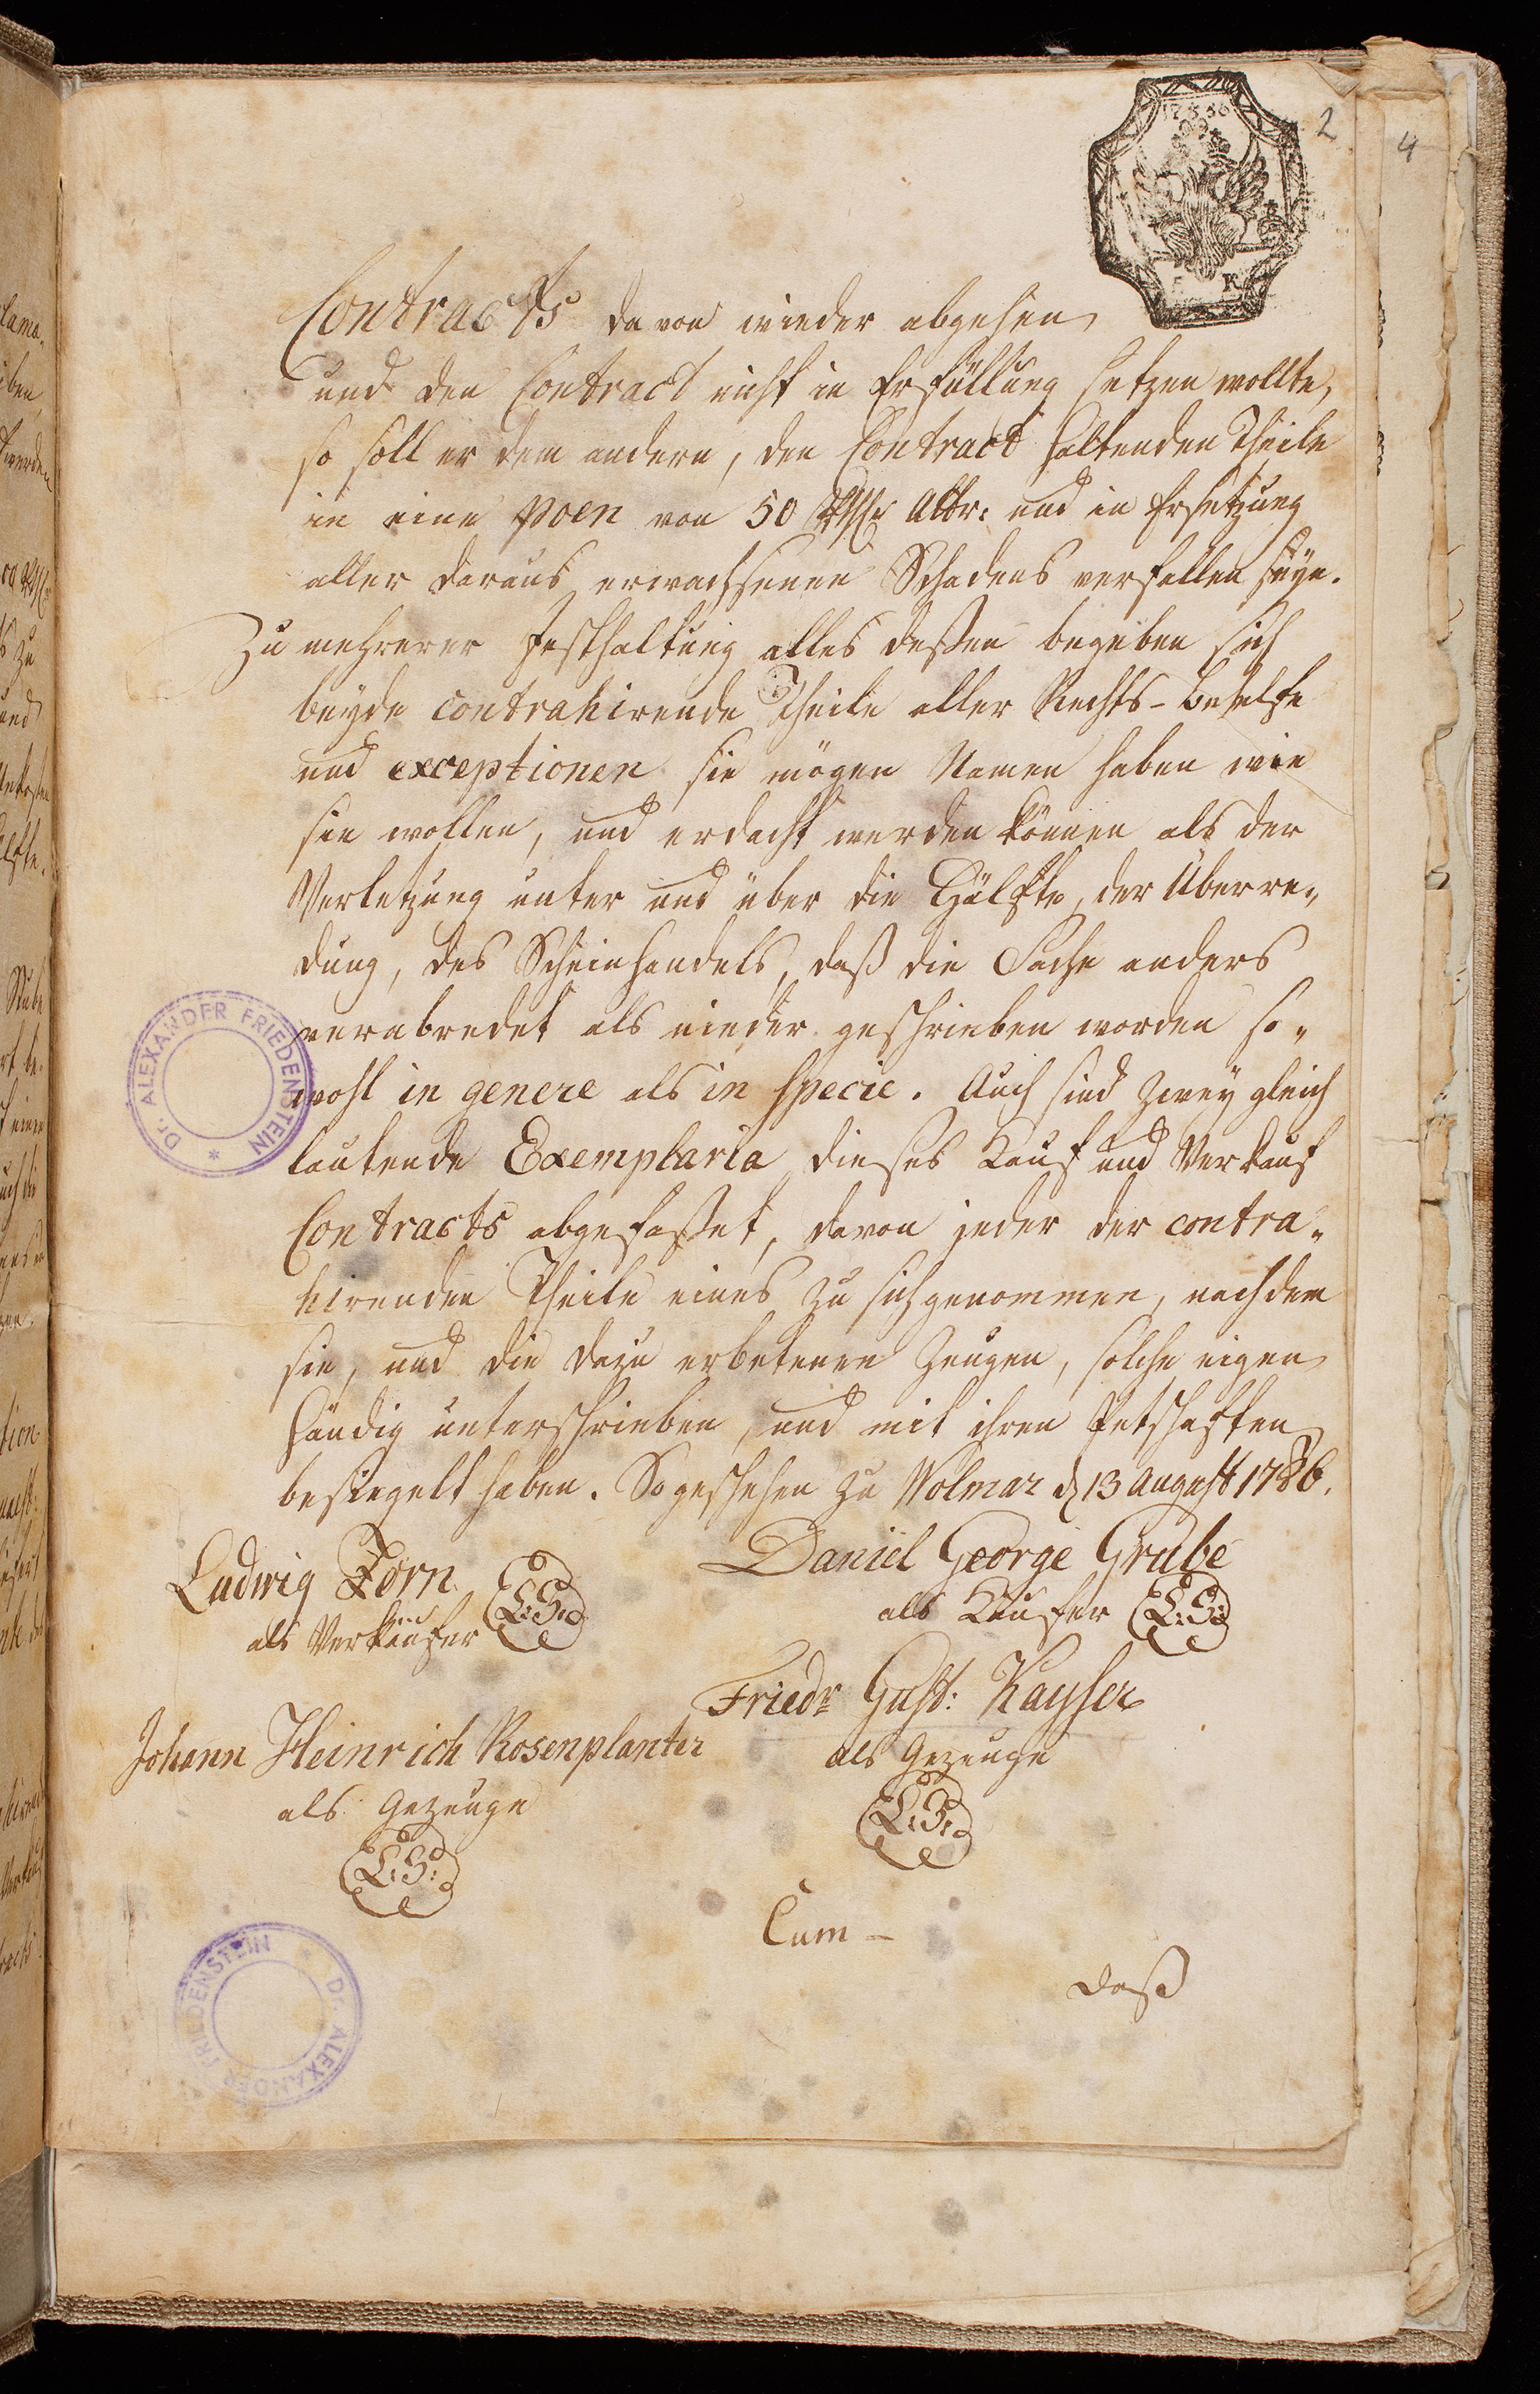 2
4
Contracts davon wieder abgehen
und den Contract nicht in Erfüllung setzen wollte,
so soll er dem andern, den Contract haltenden Theile
in eine Poen von 50 Albr: und in Ersetzung
aller daraus erwachsenen Schadens verfallen seyn.
Zu mehrerer Festhaltung alles deßen begeben sich
beyde contrahirende Theile aller Rechts-Behelfe
und exceptionen sie mögen Namen haben wie
sie wollen, und erdacht werden können als der
Verletzung unter und über die Hälfte, der Überre„
dung, des Scheinhandels, daß die Sache anders
verabredet als nieder geschrieben worden so„
wohl in genere als in specie. Auch sind zwey gleich
lautende Exemplaria dieses Kauf und Verkauf
Contracts abgefaßet, davon jeder der contra„
hirenden Theile eines zu sich genommen, nachdem
sie, und die dazu erbetenen Zeugen, solche eigen
händig unterschrieben, und mit ihren Petschaften
besiegelt haben. So geschehen zu Wolmar d 13 August 1786.
Daniel George Grube
Ludwig Zorn L:S:
als Käufer L:S:
als Verkäufer
Friedr Gust: Kayser
Johann Heinrich Rosenplänter
als Gezeuge
als Gezeuge
L:S:
L:S:
Cum –
daß
Dr. ALEXANDER FRIEDENSTEIN
Dr. ALEXANDER FRIEDENSTEIN